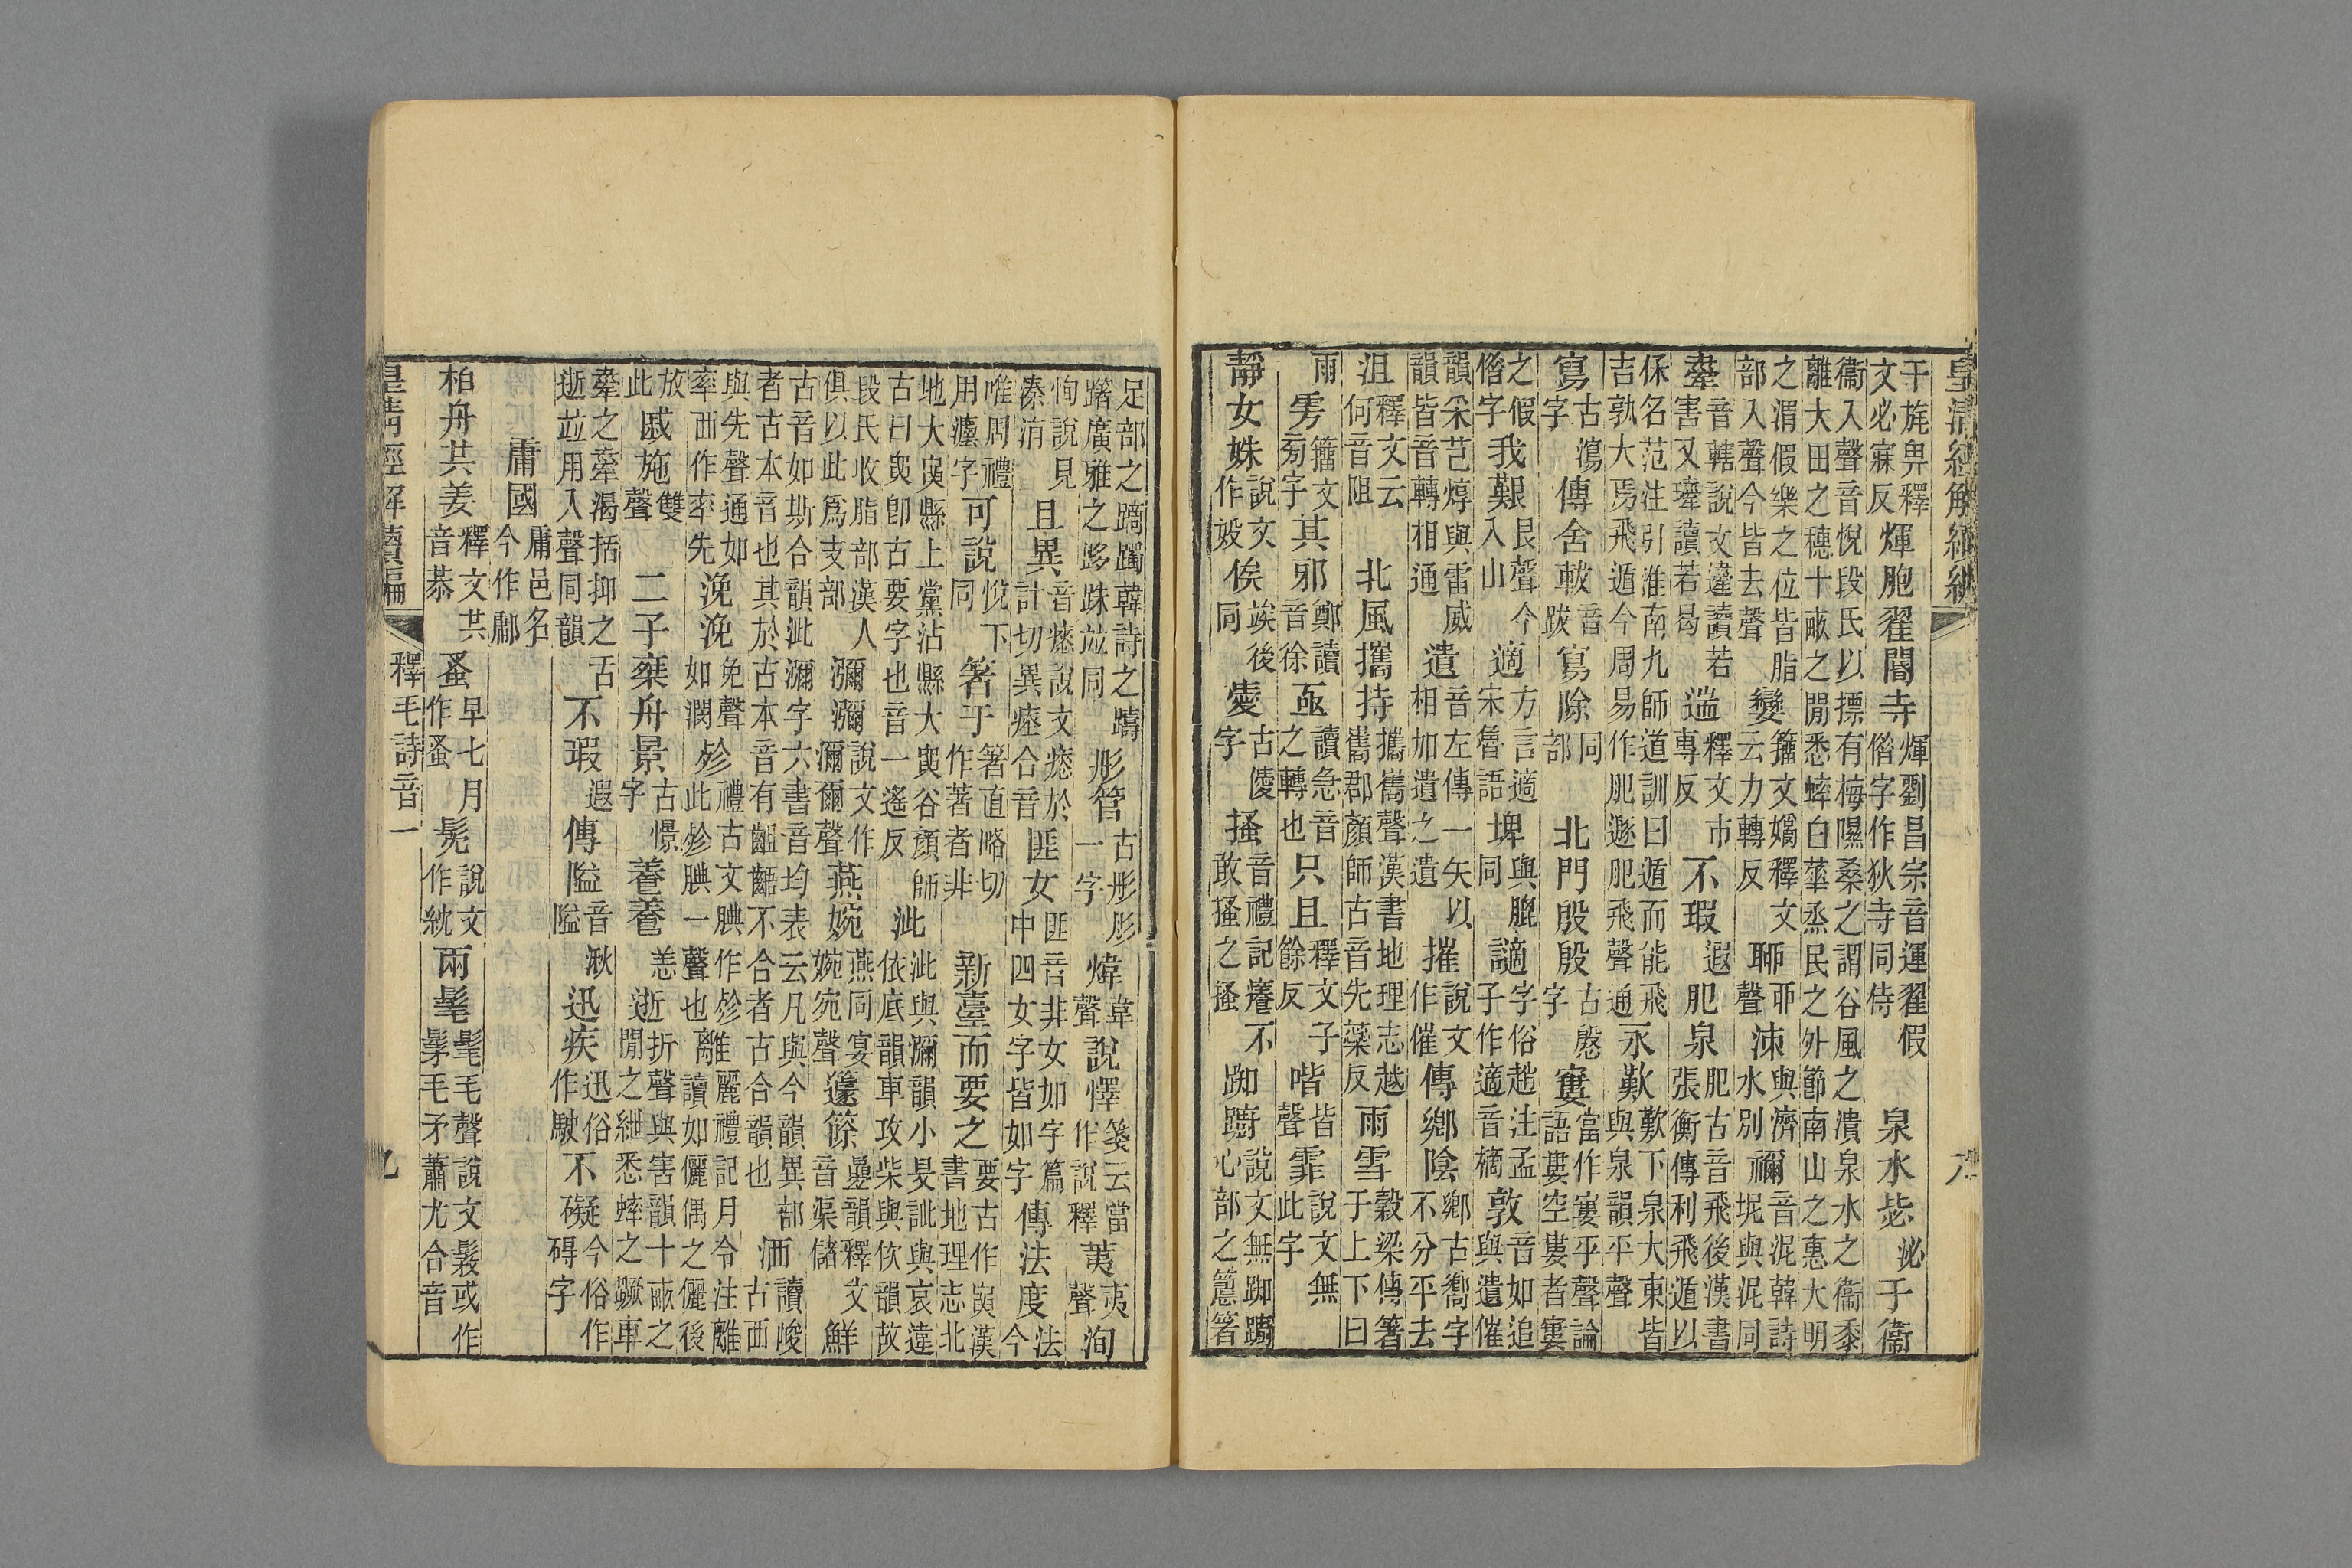 皇清經解續編
干旄畀釋文必寐反煇胞翟閽寺煇劉昌宗音運翟假借字作狄寺同侍泉水毖泌于衞
衞入聲音悅段氏以摽有梅隰桑之謂谷風之潰泉水之衞黍離大田之穗十畝之閒悉蟀曰莘烝民之外節南山之惠大明
之渭假樂之位皆脂部入聲今皆去聲孌籀文嫡釋文云力轉反聊聲泲與濟水別禰音泥韓詩坭與泥同
舝音轄說文讀若害又讀若曷遄釋文市專反不瑕遐肥泉肥古音飛後漢書張衡傳利飛遁以
保名范注引淮南九師道訓曰遁而能飛吉孰大焉飛遁今周易作肥遯肥飛聲通永歎歎下泉大東皆與泉韻平聲
寫古瀉字傳舍軷音跋寫除同部北門殷殷古慇字寠當作寠平聲論語婁空婁者寠
之假借字我艱艮聲今入山適方言適宋魯語埤與朇同讁字俗趙注孟子作適音樀敦音如追與遺催
韻采芑焞與雷威韻皆音轉相通遺音左傳一矢以相加遺之遺摧說文作催傳鄉陰鄉古嚮字不分平去
沮釋文云何音阻北風攜持攜巂聲漢書地理志越巂郡顏師古音先蘂反雨雪穀梁傳箸于上下曰
雨雱籀文旁字其邪鄭讀音徐亟讀急音之轉也只且釋文子餘反喈皆聲霏說文無此字
靜女姝說文作㚲俟竢後同愛古僾字搔音禮記癢不敢搔之搔踟躕說文無踟躕心部之箸
足部之蹢躅韓詩之躊躇廣雅之跢跦竝同彤管古彤彤一字煒韋聲說懌箋云當作說釋荑夷聲洵
恂說見溱洧且異音瘱說文瘱於計切異瘞合音匪女匪音非女如字篇中四女字皆如字傳法度法今
唯周禮用灋字可說悅下同箸于箸直略切作著者非新臺而要之要古作㽕漢書地理志北
地大㽕縣上黨沾縣大㽕谷顏師古曰㽕卽古要字也音一遙反泚泚與瀰韻小旻訿與哀違依底韻車攻柴與佽韻故
段氏收脂部漢人俱以此爲支部瀰瀰說文作濔爾聲燕婉燕同宴婉宛聲籧篨韻釋文音渠儲鮮
古音如斯合韻泚瀰字六書音均表云凡與今韻異部者古本音也其於古本音有齟齬不合者古合韻也洒讀峻古西
與先聲通如率西作率先浼浼免聲如潤殄禮古文腆作殄此殄腆一聲也離離麗禮記月令注離讀如儷偶之儷後
放此戚施雙聲二子乘舟景古憬字養養恙逝折聲與害韻十畝之閒之紲悉蟀之蹶車
舝之舝渴括抑之舌逝竝用入聲同韻不瑕遐傳隘音隘湫迅疾迅俗作駛不礙今俗作碍字
庸國庸邑名今作鄘
柏舟共姜釋文共音恭蚤早七月作蚤髧說文作紞兩髦髦毛聲說文髳或作髳毛矛蕭尤合音
皇清經解續編 釋毛詩音一